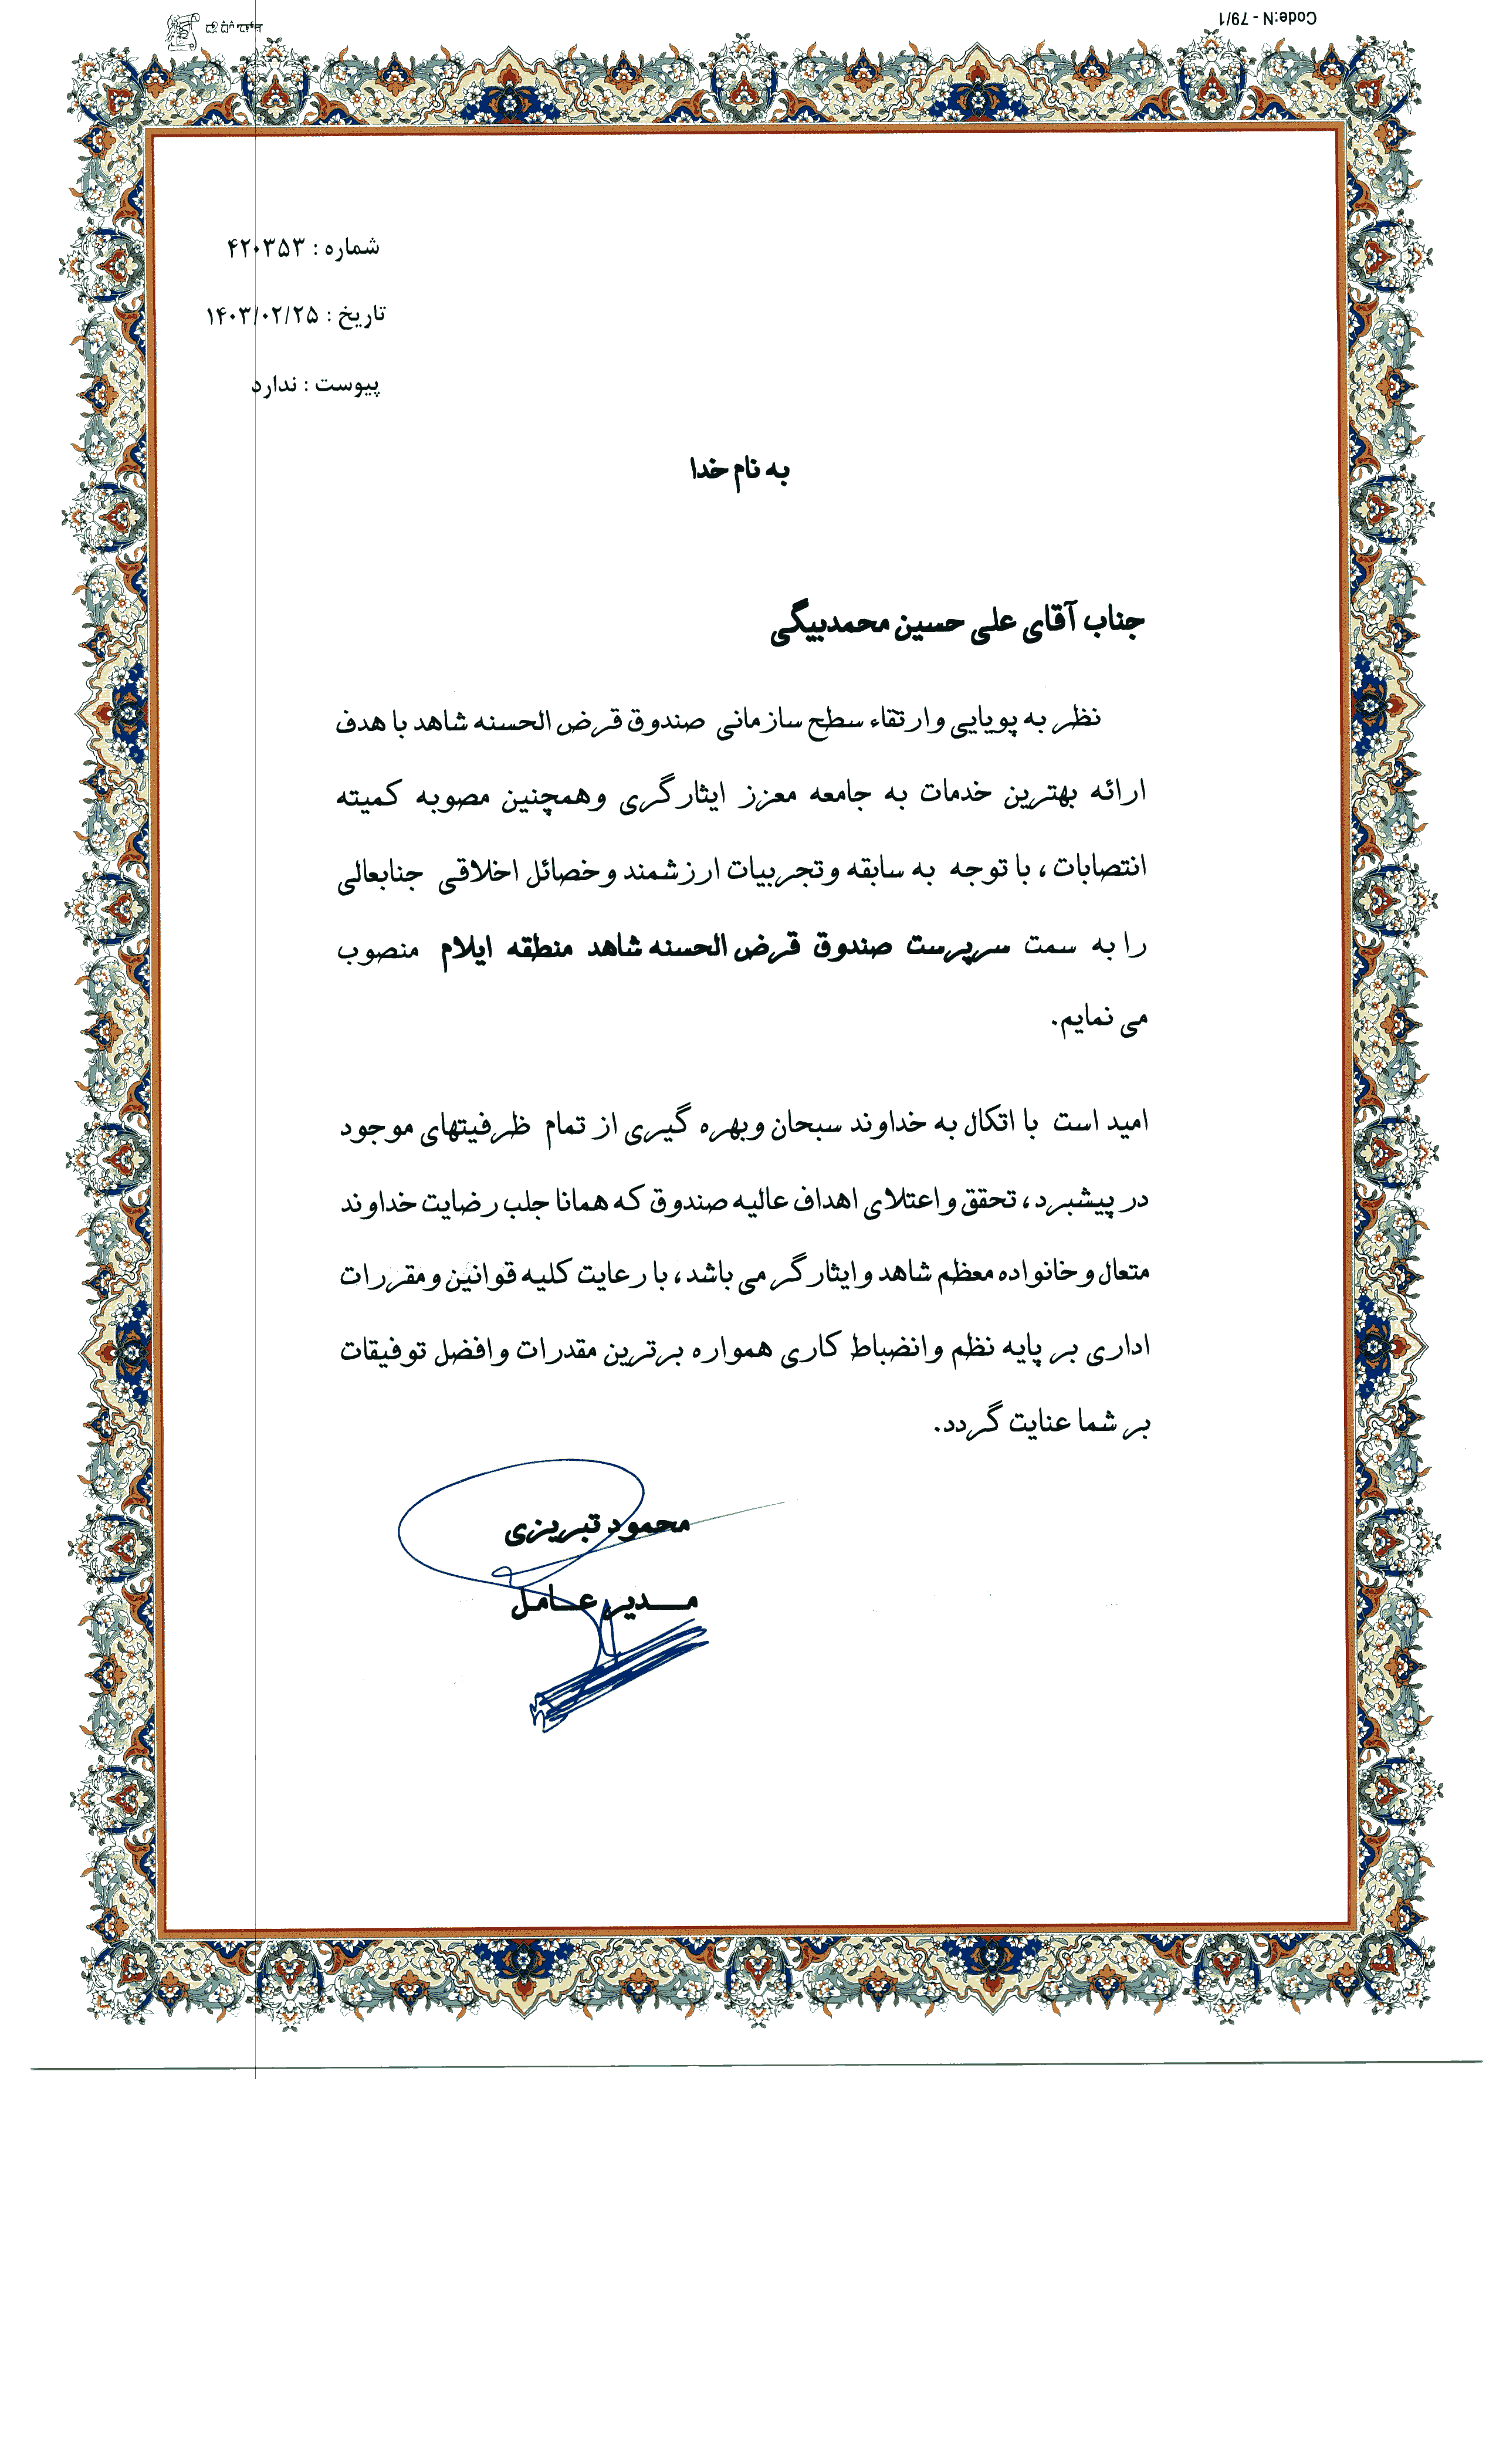 Code:N - 79/1
شماره : ۴۲۰۳۵۳
تاریخ : ۱۴۰۳/۰۲/۲۵
پیوست : ندارد
به نام خدا
جناب آقای علی حسین محمدبیگی
نظر به پویایی وارتقاء سطح سازمانی صندوق قرض الحسنه شاهد با هدف
ارائه بهترین خدمات به جامعه معزز ایثارگری وهمچنین مصوبه کمیته
انتصابات ، با توجه به سابقه وتجربیات ارزشمند وخصائل اخلاقی جنابعالی
را به سمت سرپرست صندوق قرض الحسنه شاهد منطقه ایلام منصوب
می نمایم.
امید است با اتکال به خداوند سبحان وبهره گیری از تمام ظرفیتهای موجود
در پیشبرد ، تحقق و اعتلای اهداف عالیه صندوق که همانا جلب رضایت خداوند
متعال و خانواده معظم شاهد و ایثارگر می باشد ، با رعایت کلیه قوانین ومقررات
اداری بر پایه نظم وانضباط کاری همواره برترین مقدرات وافضل توفیقات
بر شما عنایت گردد.
محمود تبریزی
مـــدیر عـــامل